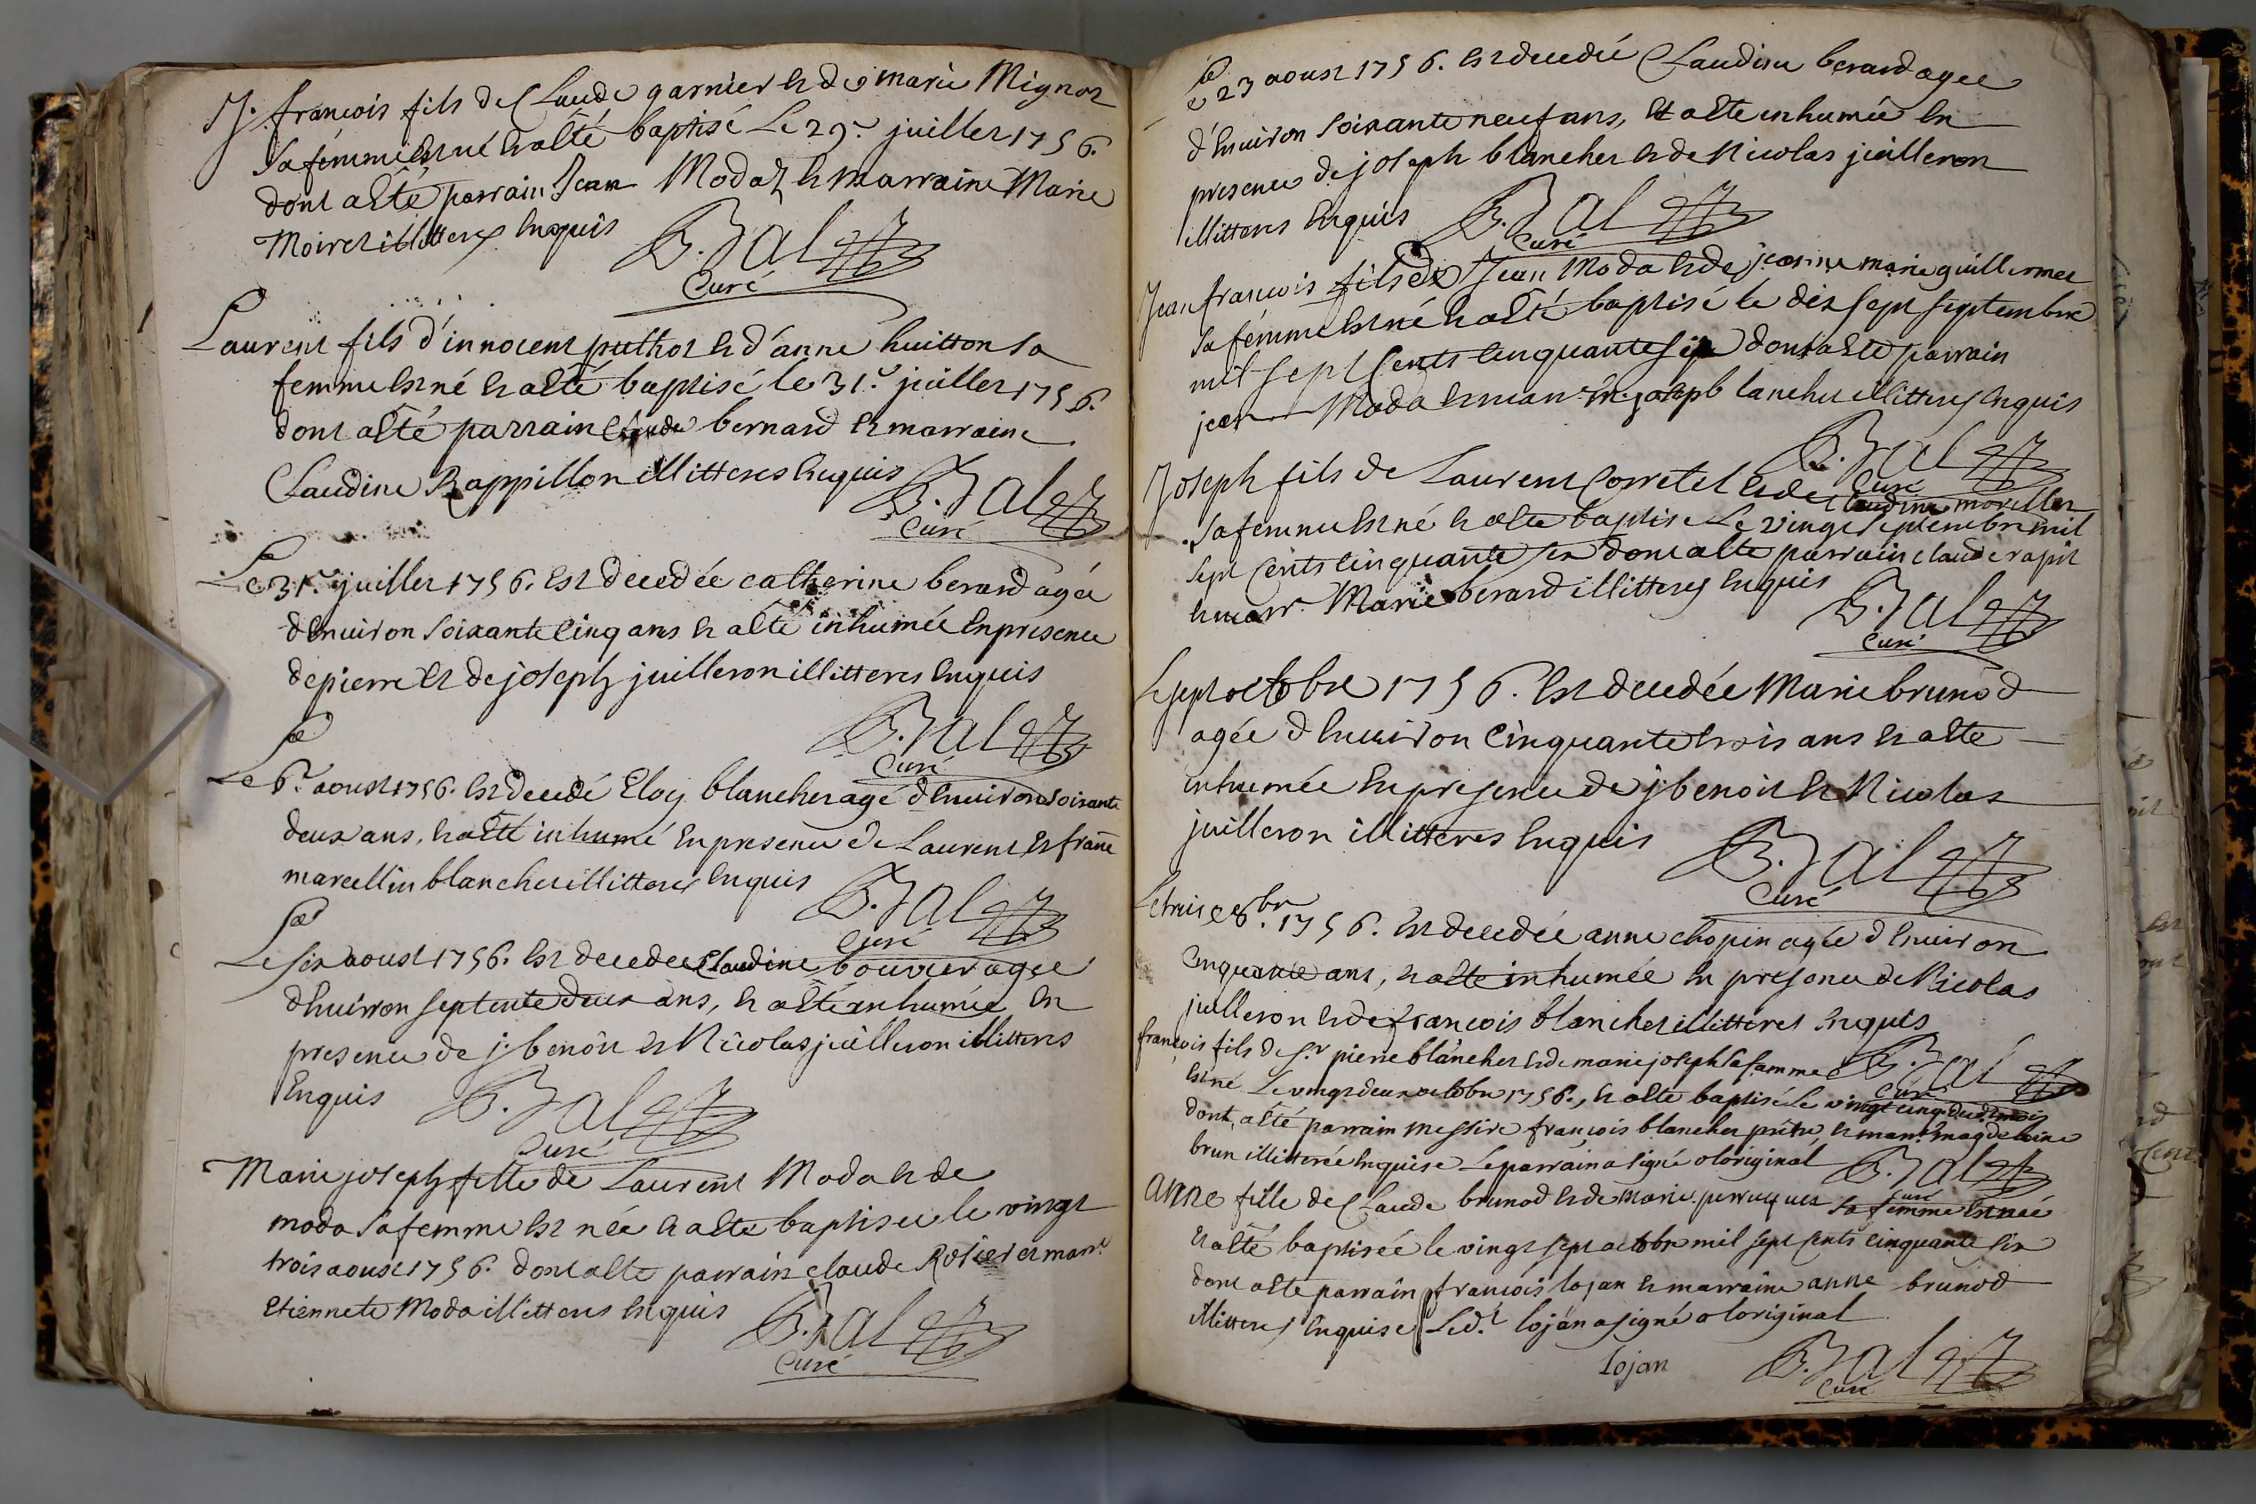 J. françois fils de Claude garnier et de marie Mignot
sa femme est né et a été baptisé Le 29.e juillet 1756.
dont a été parrain Jean Modaz et marraine Marie
Moiret illitteres enquis
Curé
Laurent fils d'innocent puthot et d'anne huitton sa
femme est né et a été baptisé le 31.e juillet 1756.
dont a été parrain Claude bernard et marraine
Claudine Rappillon illitteres enquis
Curé
Le 31.e juillet 1756. est decedée catherine berard agée
d'environ soixante cinq ans et a été inhumée en presence
de pierre et de joseph juilleron illitteres enquis
Curé
Le 6.e aoust 1756. est decedé Eloy blanchet agé d'environ soixante
deux ans, et a été inhumé en presence de Laurent et
marcellin blanchet illitteres enquis
Curé
Le six aoust 1756. est decedee Claudine bouvier agée
d'environ septente deux ans, et a été inhumée en
presence de j. benoit et Nicolas juilleron illitteres
Enquis
Curé
Marie joseph fille de Laurent Moda et de
moda sa femme est née et a eté baptisee le vingt
trois aoust 1756. dont a eté parrain claude et marr.e
Etiennete Moda illitteres enquis
Curé
Le 23 aoust 1756. est decedée Claudine berard agee
d'environ soixante neuf ans, Et a eté inhumée en
presence de joseph blanchet et de Nicolas juilleron
illitteres enquis
Curé
Jean françois fils de Jean Moda et de jeanne marie guillermet
sa femme est né et a été baptisé le dix sept septembre
mil sept Cents cinquante six dont a eté parrain
jean Moda et marr. blanchet illitteres enquis
Curé
Joseph fils de Laurent Corretel et de Claudine morellet
sa femme est né et a eté baptisé Le vingt septembre mil
sept Cents cinquante six dont a eté parrain claude rapil
et marr. Marie berard illitteres enquis
Curé
Le sept octobre 1756. est decedée Marie brunod
agée d'environ Cinquante trois ans et a eté
inhumée en presence de j benoit et Nicolas
juilleron illitteres enquis
Curé
Le trois 8.bre 1756. est decedée anne chopin agée d'environ
Cinquante ans, et a eté inhumée en presence de Nicolas
juilleron et de françois blanchet illitteres enquis
Curé
françois fils de s.r pierre blanchet et de marie joseph sa famme
est né Le vingt deux octobre 1756., et a eté baptisé Le vingt cinq dud. mois
dont a été parrain messire françois blanchet prêtre et marr. magdeleine
brun illitterée enquise Le parrain a signé a l'original
Curé
anne fille de Claude brunod et de marie perruquet sa femme est née
et a été baptisée le vingt sept octobre mil sept cents cinquante six
dont a eté parrain françois lojan et marraine anne brunod
illitteres enquise Led.t lojan a signé a l'original
lojan
Curé